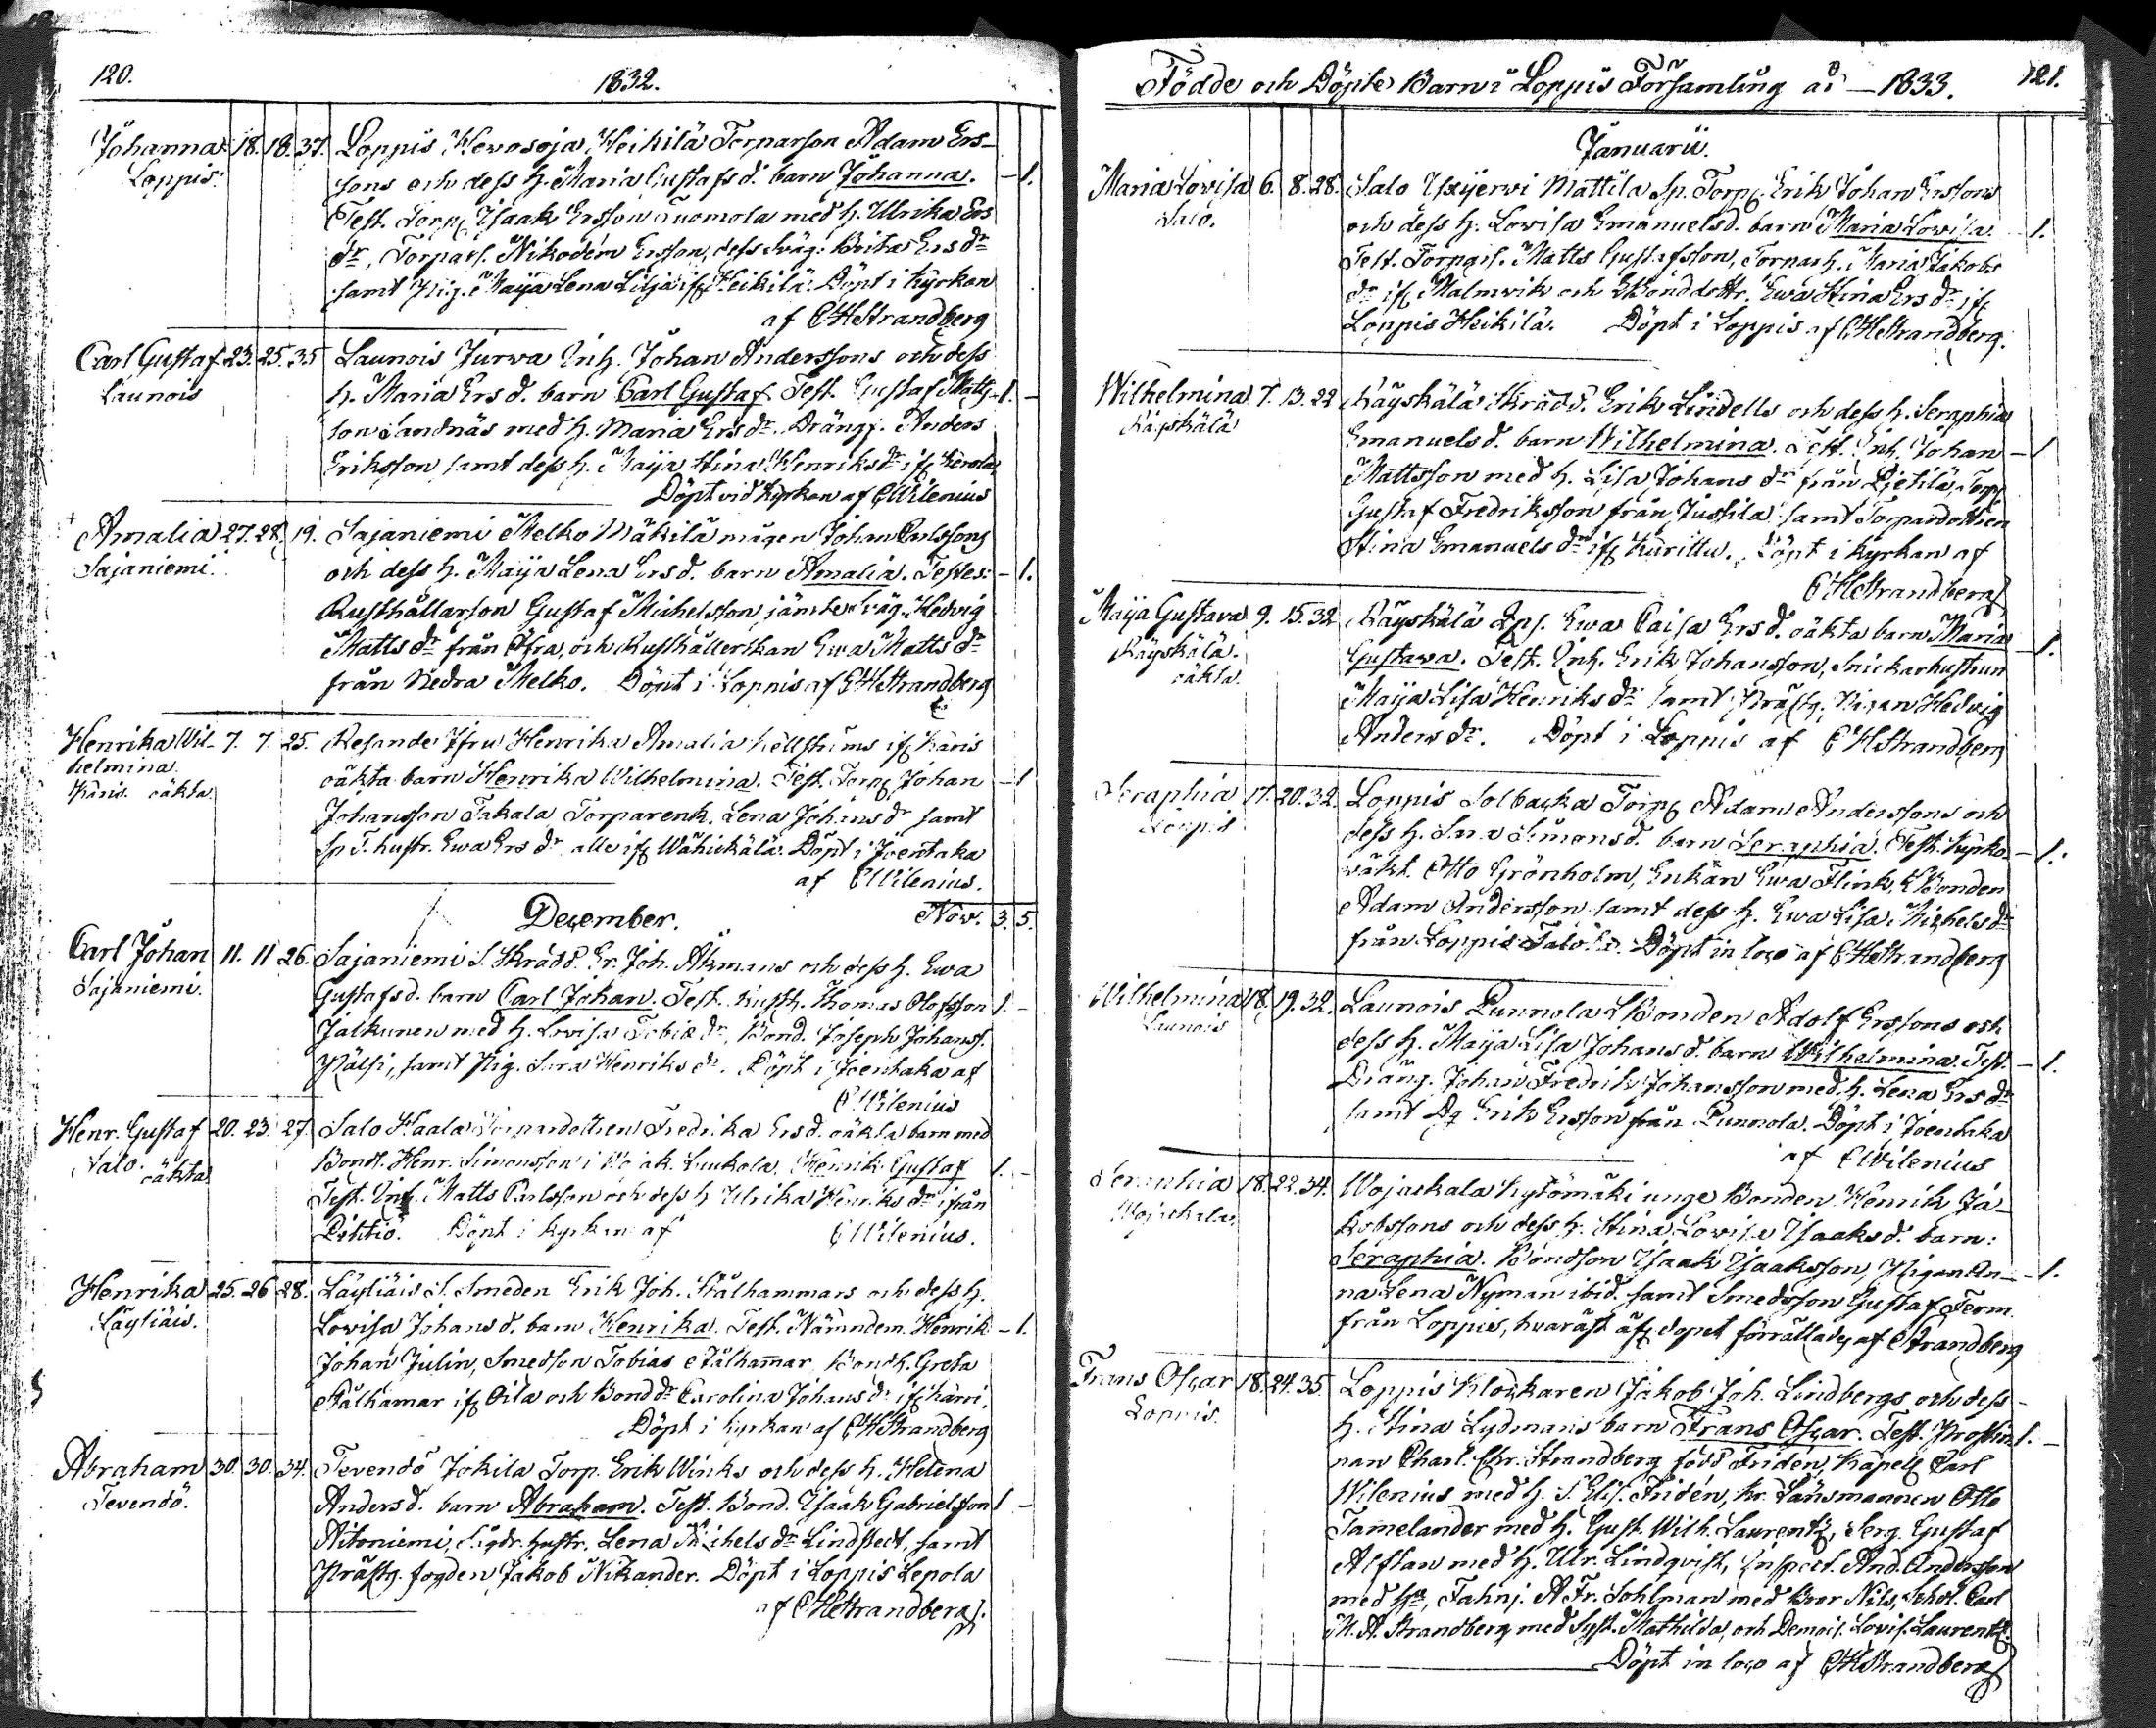 120.
1832.
Johanna 18. 18. 37. Loppis Hevosoja Heikilä Torparson Adam Ers-
Loppis. sons och dess h. Maria Gustafsd. barn Johanna. - 1.
Test. Torp. Isaak Ersson Tuomola med h. Ulrika Ers
dr, Torpars. Nikodem Ersson, dess Swäg. Brita Ers dr
samt Pig. Maija Lena Lilja ifr. Heikilä. Döpt i Kyrkan
af CHStrandberg
Carl Gustaf 23. 25. 35 Launois Jurwa Inh. Johan Anderssons och dess
Launois h. Maria Ers d. barn Carl Gustaf. Test. Gustaf Matts- 1. -
son Sandnäs med h. Maria Ers dr. Dräng. Anders
Eriksson samt dess h. Maija Stina Henriks dr ifr.
Döpt vid Kyrkan af CWilenius
+ Amalia 27. 28. 19. Sajaniemi Melko Mäkilä mågen Johan Carlssons
Sajaniemi. och dess h. Maija Lena Ers d. barn Amalia. Testes: - 1.
Rusthållarson Gustaf Michelsson, jämte Swäg. Hedvig
Matts dr från Öfra, och Rusthållerskan Ewa Matts dr
från Nedra Melko. Döpt i Loppis af CHStrandberg
Henrika Wil- 7. 7. 25. Resande Jfru Henrika Amalia Hellströms ifr. Karis
helmina. oäkta barn Henrika Wilhelmina. Test. Torp. Johan - 1
Karis. oäkta. Johansson Takala Torparenk. Lena Johans dr samt
Sp T. hustr. Ewa Ers dr alle ifr. Wähikälä. Döpt i Joentaka
af CWilenius.
December. Nov. 3. 5.
Carl Johan 11. 11 26. Sajaniemi S. Skrädd. Er. Joh. Åkmans och dess h. Ewa
Sajaniemi. Gustafsd. barn Carl Johan. Test. Rusth. Thomas Olofsson 1. -
Jalkunen med h. Lovisa Tobiæ dr, Bond. Joseph Johanss.
Pälsi, samt Pig. Sara Henriks dr. Döpt i Joentaka af
CWilenius
Henr. Gustaf 20. 23. 27. Salo Haala Torpardottren Fredrika Ers d. oäkta barn med
Salo. oäkta Bond. Henr. Simonsson i Luukola, Henrik Gustaf 1. -
Test. Inh. Matts Carlsson och dess h Ulrika Henriks dr ifrån
Döpt i Kyrkan af CWilenius.
Henrika 25. 26 28. Läyliäis S. Smeden Erik Joh. Stålhammars och dess h.
Läyliäis. Lovisa Johans d. barn Henrika. Test. Nämndem. Henrik - 1.
Johan Julin, Smedson Tobias Stålhammar Bondh. Greta
Stålhamar ifr. Oila och Bond dr Carolina Johans dr ifr. Karri.
Döpt i Kyrkan af CHStrandberg
Abraham 30. 30. 34. Tevendö Jokila Torp. Erik Winks och dess h. Helena
Tevendö. Anders d. barn Abraham. Test. Bond. Isaak Gabrielsson 1 -
Aitoniemi, hustr. Lena Michels dr Lindstedt, samt
Prästg. fogden Jakob Nikander. Döpt i Loppis Lepola
af CHStrandberg.
Födde och Döpte Barn i Loppis Församling år - 1833. 121.
Januarii.
Maria Lovisa 6. 8. 28. Salo Yxijerwi Mattila Sp. Torp. Erik Johan Erssons
Salo. och dess h. Lowisa Emanuelsd. barn Maria Lowisa. - 1.
Test. Torpars. Matts Gustafsson, Torparh. Maria Jakobs
dr ifr. Malmvik och LBonddottr. Ewa Stina Ers dr ifr.
Loppis Heikilä. Döpt i Loppis af CHStrandberg.
Wilhelmina 7. 13. 22 Räyskälä Skrädd. Erik Lindells och dess h. Seraphia
Räyskälä Emanuelsd. barn Wilhelmina. Test. Inh. Johan - 1
Mattsson med h. Lisa Johans dr från Pietilä, Torp.
Gustaf Fredriksson från Jussila samt Torpardottren
Stina Emanuels dr ifr. Kurittu. Döpt i Kyrkan af
CHStrandberg
Maija Gustava 9. 15. 32 Räyskälä Qps. Ewa Caisa Ers d. oäkta barn Maria
Räyskälä. Gustava. Test. Inh. Erik Johansson, Snickarhustrun - 1.
oäkta. Maija Lisa Henriks dr samt Prästg. Pigan Hedvig
Anders dr. Döpt i Loppis af CHStrandberg
Seraphia 17. 20. 32. Loppis Solbacka Torp. Adam Anderssons och
Loppis dess h. Sara Simonsd. barn Seraphia. Test. Kyrko- - 1.
väkt. Otto Grönholm, Enkan Ewa Flink, LBonden
Adam Andersson samt dess h. Ewa Lisa Michels dr
från Loppis Döpt in loco af CHStrandberg
Wilhelmina 18. 19. 32. Launois Punnola LBonden Adolf Erssons och
Launois dess h. Maija Lisa Johans d. barn Wilhelmina. Test. - 1.
Dräng. Johan Fredrik Johansson med h. Lena Ers dr
samt Dg Erik Ersson från Punnola. Döpt i Joentaka
af CWilenius
Seraphia 18. 22. 34. Wojakala Kytömäki unge Bonden Henrik Ja-
Wojakala kobssons och dess h. Stina Lovisa Isaaks d. barn:
Seraphia. Bondson Isaak Isaaksson, Pigan An- - 1.
na Lena Nyman ibid. samt Smedsson Gustaf Ferm
från Loppis, hvaräst äfv. dopet förrättades af Strandberg
Frans Oscar 18. 24. 35. Loppis Klockaren Jakob Joh. Lindbergs och dess
Loppis. h. Stina Lydmans barn Frans Oscar. Test. Prostin- 1. -
nan Charl. Chr. Strandberg född Fridén, Kapell. Carl
Wilenius med h. S. Elis. Fridén, kr. Länsmannen Otto
Tamelander med h. Gust. Wilh. Laurentz, Serg. Gustaf
Alftan med h. Ulr. Lindqvist, Inspect. And. Andersson
med hu, Fahnj. A Fr. Sohlman med Bror Nils, Schol. Carl
M. A. Strandberg med Syst. Mathilda, och Demois. Lovis. Laurentz.
Döpt in loco af CHStrandberg